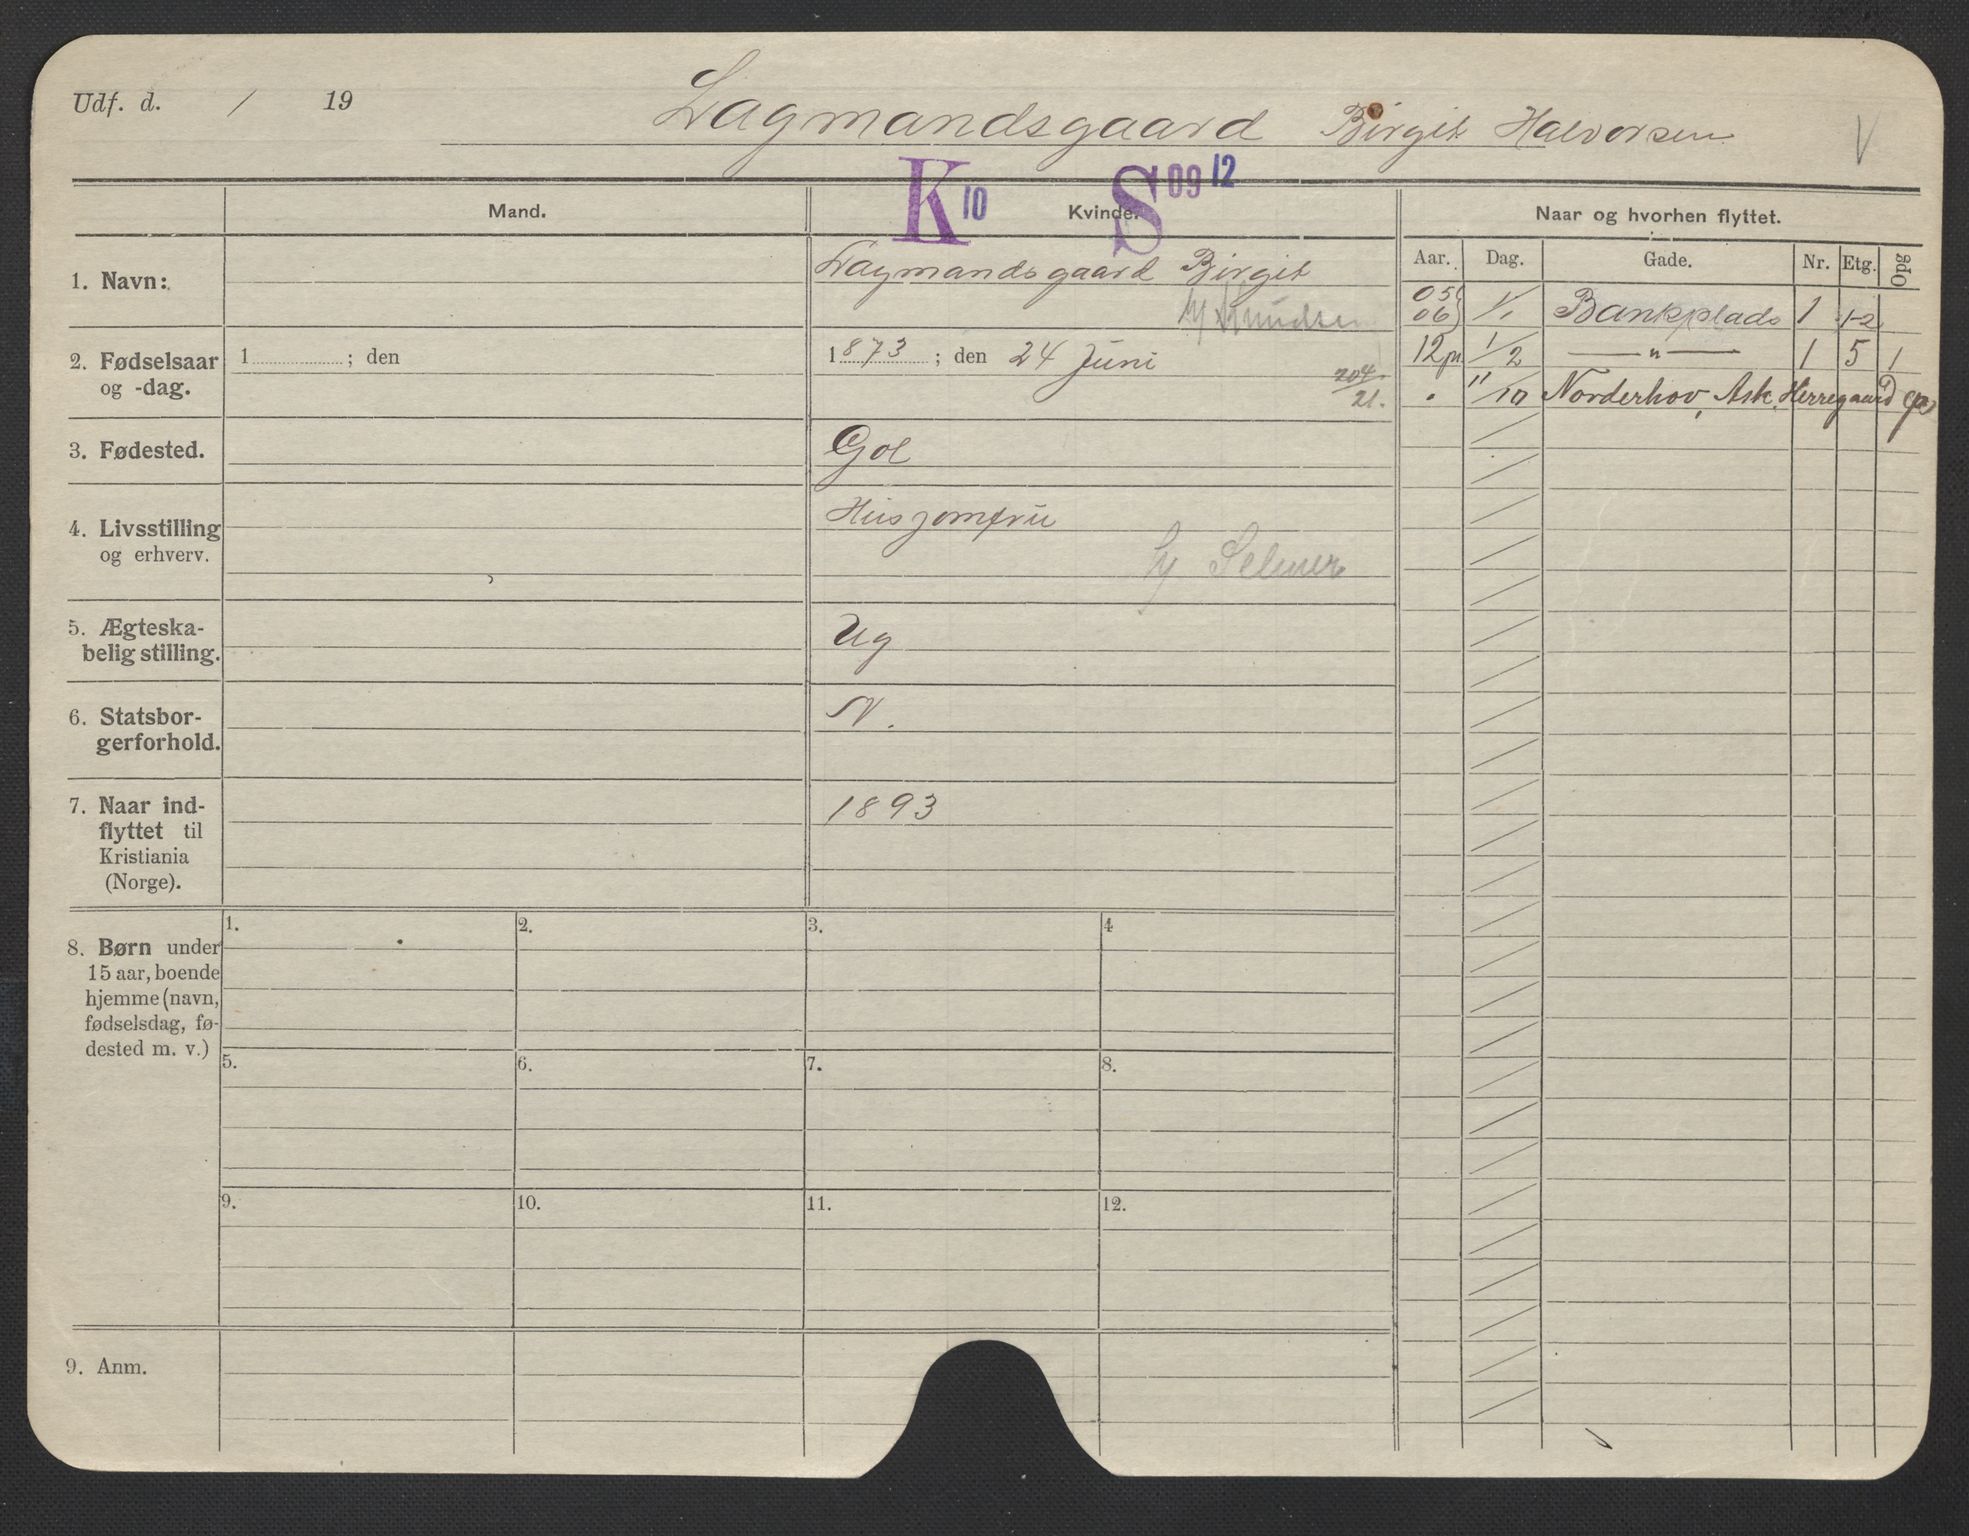 Udf. d. / 19 Lagmandsgaard Birgit Halvorsen V
K 10 S 09 12
Mand. Kvinde. Naar og hvorhen flyttet.
Aar. Dag. Gade. Nr. Etg. Opg
1. Navn: Lagmandsgaard Birgit
h/ Knudsen
05 06 1/1 Bankplads 1 1-2
2. Fødselsaar og -dag. 1 ; den 1873 ; den 24 Juni
204/21.
12 1/2 — " — 1 5 1
" /10 Norderhov, Ask Herregaard
3. Fødested. Gol
4. Livsstilling og erhverv. Husjomfru
h/ Selmer
5. Ægteska-
belig stilling. Ug
6. Statsbor-
gerforhold. N.
7. Naar ind-
flyttet til
Kristiania
(Norge). 1893
8. Børn under
15 aar, boende
hjemme (navn,
fødselsdag, fø-
dested m. v.)
1. 2. 3. 4
5. 6. 7. 8.
9. 10. 11. 12.
9. Anm.